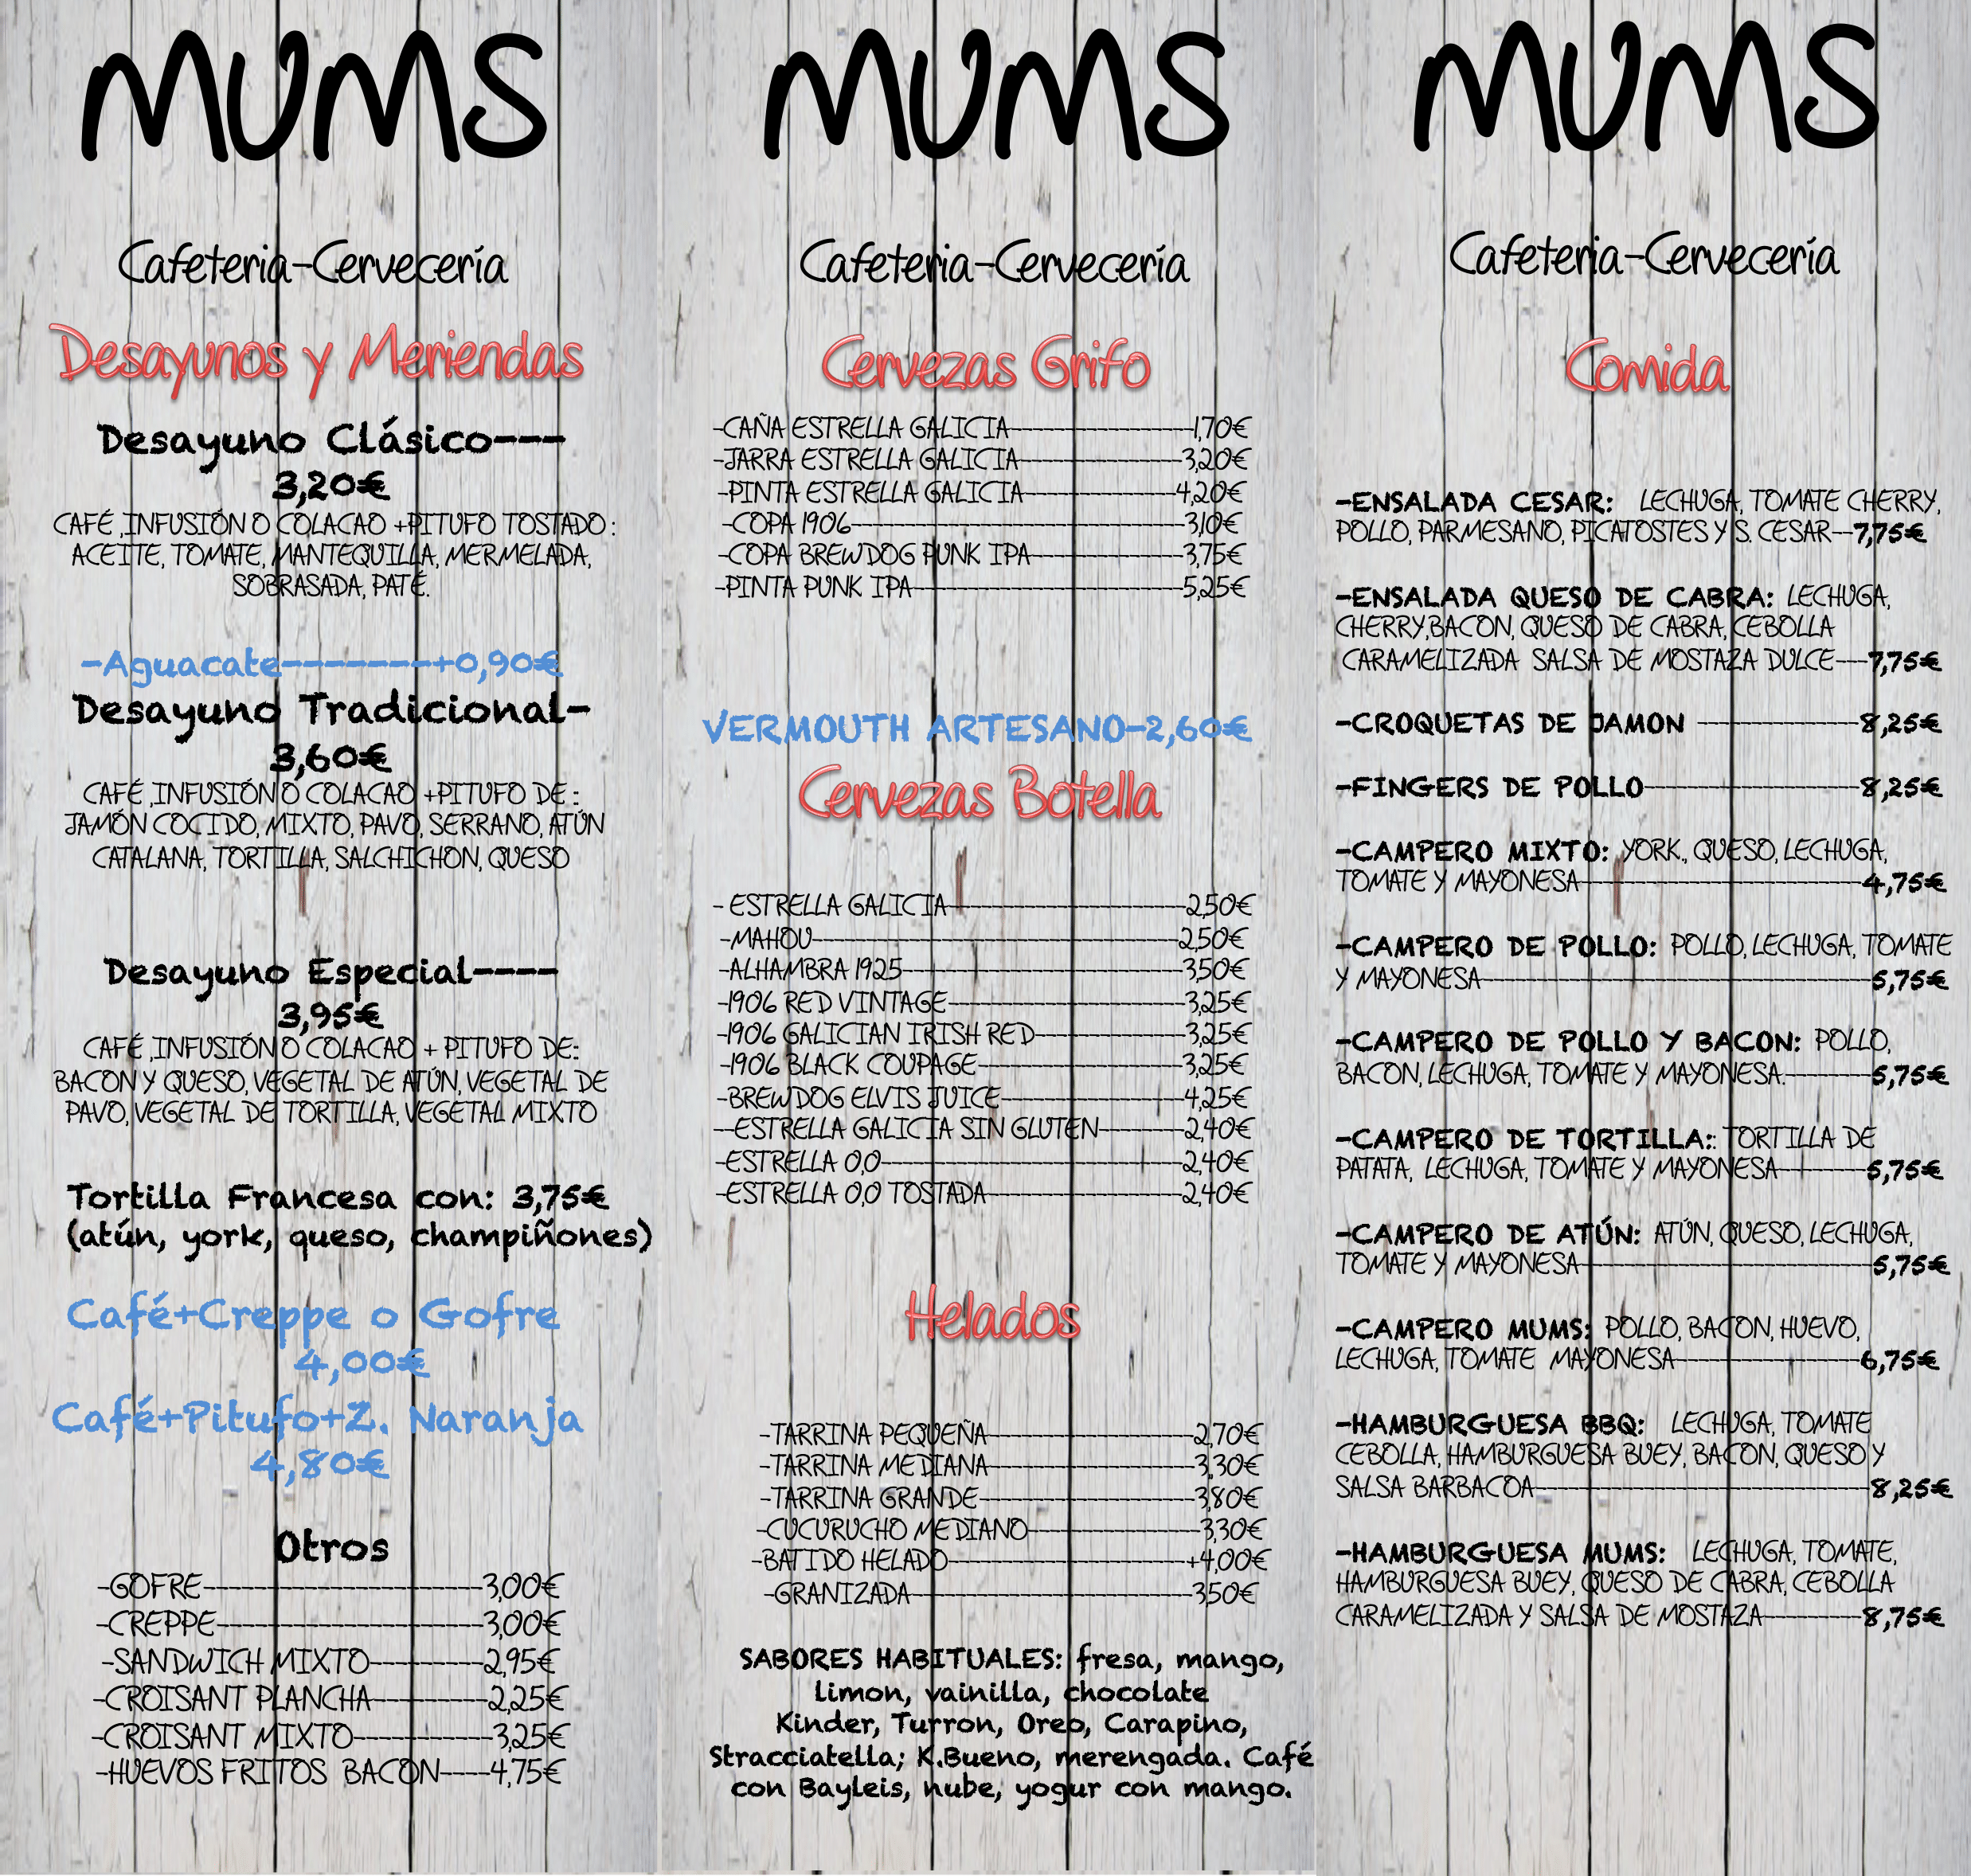 MUMS
Cafeteria-Cervecería
Desayunos y Meriendas
Desayuno Clásico---
3,20€
CAFÉ ,INFUSIÓN O COLACAO +PITUFO TOSTADO :
ACEITE, TOMATE, MANTEQUILLA, MERMELADA,
SOBRASADA, PATÉ.
-Aguacate-------+0,90€
Desayuno Tradicional-
3,60€
CAFÉ ,INFUSIÓN O COLACAO +PITUFO DE :
JAMÓN COCIDO, MIXTO, PAVO, SERRANO, ATÚN
CATALANA, TORTILLA, SALCHICHON, QUESO
Desayuno Especial----
3,95€
CAFÉ ,INFUSIÓN O COLACAO + PITUFO DE:
BACON Y QUESO, VEGETAL DE ATÚN, VEGETAL DE
PAVO, VEGETAL DE TORTILLA, VEGETAL MIXTO
Tortilla Francesa con: 3,75€
(atún, york, queso, champiñones)
Café+Creppe o Gofre
4,00€
Café+Pitufo+Z. Naranja
4,80€
Otros
-GOFRE--------------------------3,00€
-CREPPE-------------------------3,00€
-SANDWICH MIXTO----------2,95€
-CROISANT PLANCHA----------2,25€
-CROISANT MIXTO------------3,25€
-HUEVOS FRITOS  BACON----4,75€
MUMS
Cafeteria-Cervecería
Cervezas Grifo
-CAÑA ESTRELLA GALICIA-----------------1,70€
-JARRA ESTRELLA GALICIA---------------3,20€
-PINTA ESTRELLA GALICIA--------------4,20€
-COPA 1906-------------------------------3,10€
-COPA BREWDOG PUNK IPA--------------3,75€
-PINTA PUNK IPA-------------------------5,25€
VERMOUTH ARTESANO-2,60€
Cervezas Botella
- ESTRELLA GALICIA----------------------2,50€
-MAHOU----------------------------------2,50€
-ALHAMBRA 1925--------------------------3,50€
-1906 RED VINTAGE----------------------3,25€
-1906 GALICIAN IRISH RED--------------3,25€
-1906 BLACK COUPAGE-------------------3,25€
-BREWDOG ELVIS JUICE-----------------4,25€
--ESTRELLA GALICIA SIN GLUTEN--------2,40€
-ESTRELLA 0,0----------------------------2,40€
-ESTRELLA 0,0 TOSTADA------------------2,40€
Helados
-TARRINA PEQUEÑA-------------------2,70€
-TARRINA MEDIANA-------------------3,30€
-TARRINA GRANDE--------------------3,80€
-CUCURUCHO MEDIANO----------------3,30€
-BATIDO HELADO----------------------+4,00€
-GRANIZADA--------------------------3,50€
SABORES HABITUALES: fresa, mango,
limon, vainilla, chocolate
Kinder, Turron, Oreo, Carapino,
Stracciatella; K.Bueno, merengada. Café
con Bayleis, nube, yogur con mango.
MUMS
Cafeteria-Cervecería
Comida
-ENSALADA CESAR:  LECHUGA, TOMATE CHERRY,
POLLO, PARMESANO, PICATOSTES Y S. CESAR--7,75€
-ENSALADA QUESO DE CABRA: LECHUGA,
CHERRY,BACON, QUESO DE CABRA, CEBOLLA
CARAMELIZADA  SALSA DE MOSTAZA DULCE---7,75€
-CROQUETAS DE JAMON ---------------8,25€
-FINGERS DE POLLO--------------------8,25€
-CAMPERO MIXTO: YORK., QUESO, LECHUGA,
TOMATE Y MAYONESA--------------------------4,75€
-CAMPERO DE POLLO: POLLO, LECHUGA, TOMATE
Y MAYONESA------------------------------------5,75€
-CAMPERO DE POLLO Y BACON: POLLO,
BACON, LECHUGA, TOMATE Y MAYONESA.--------5,75€
-CAMPERO DE TORTILLA:: TORTILLA DE
PATATA,  LECHUGA, TOMATE Y MAYONESA--------5,75€
-CAMPERO DE ATÚN: ATÚN, QUESO, LECHUGA,
TOMATE Y MAYONESA---------------------------5,75€
-CAMPERO MUMS: POLLO, BACON, HUEVO,
LECHUGA, TOMATE  MAYONESA-----------------6,75€
-HAMBURGUESA BBQ:  LECHUGA, TOMATE
CEBOLLA, HAMBURGUESA BUEY, BACON, QUESO Y
SALSA BARBACOA-------------------------------8,25€
-HAMBURGUESA MUMS:  LECHUGA, TOMATE,
HAMBURGUESA BUEY, QUESO DE CABRA, CEBOLLA
CARAMELIZADA Y SALSA DE MOSTAZA---------8,75€